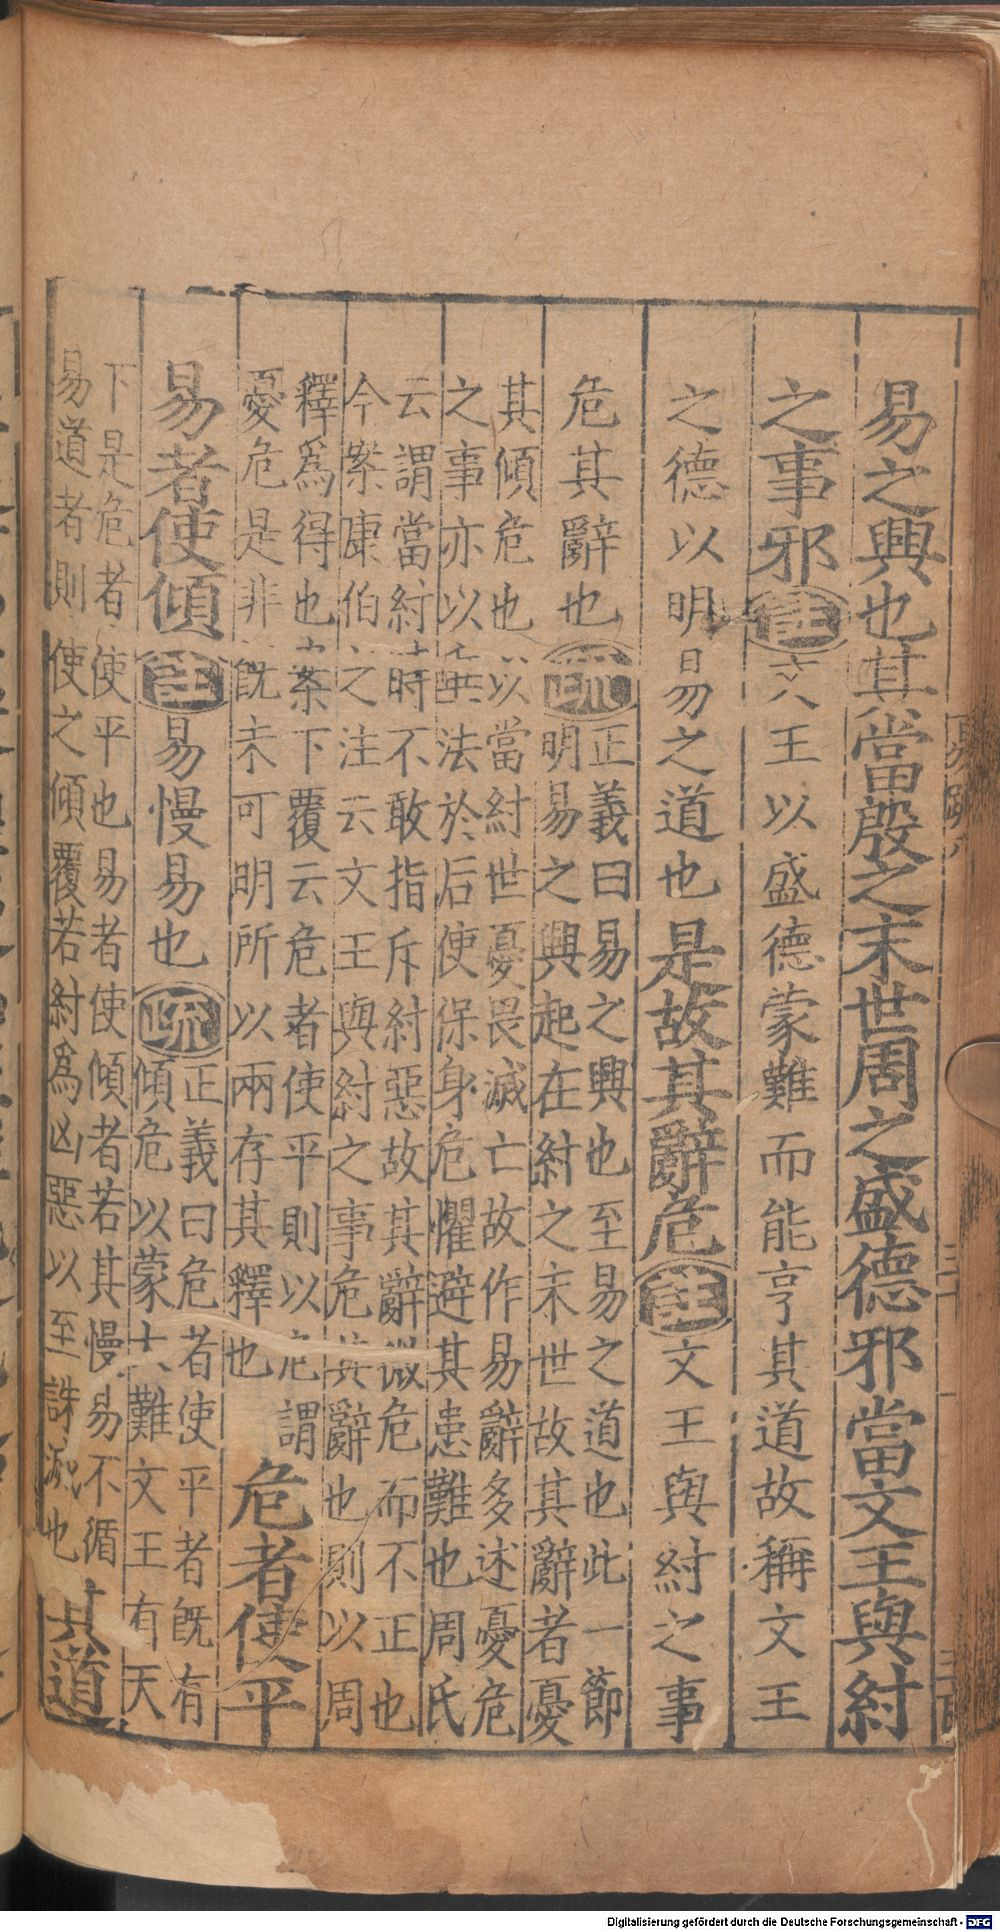 易之興也其當殷之末世周之盛德邪當文王與紂
之事邪註文王以盛德蒙難而能亨其道故稱文王
之德以明易之道也是故其辭危註文王與紂之事
危其辭也疏正義曰易之興也至易之道也此一節
明易之興起在紂之末世故其辭者憂
其傾危也以當紂世憂畏滅亡故作易辭多述憂危
之事亦以垂法於后使保身危懼避其患難也周氏
云謂當紂時不敢指斥紂惡故其辭微危而不正也
今案康伯之注云文王與紂之事危其辭也則以周
釋爲得也案下覆云危者使平則以危謂
憂危是非既未可明所以兩存其釋也危者使平
易者使傾註易慢易也疏正義曰危者使平者既有
傾危以蒙大難文王有天
下是危者使平也易者使傾者若其慢易不循
易道者則使之傾覆若紂爲凶惡以至誅滅也其道
Digitalisierung gefördert durch die Deutsche Forschungsgemeinschaft - DFG